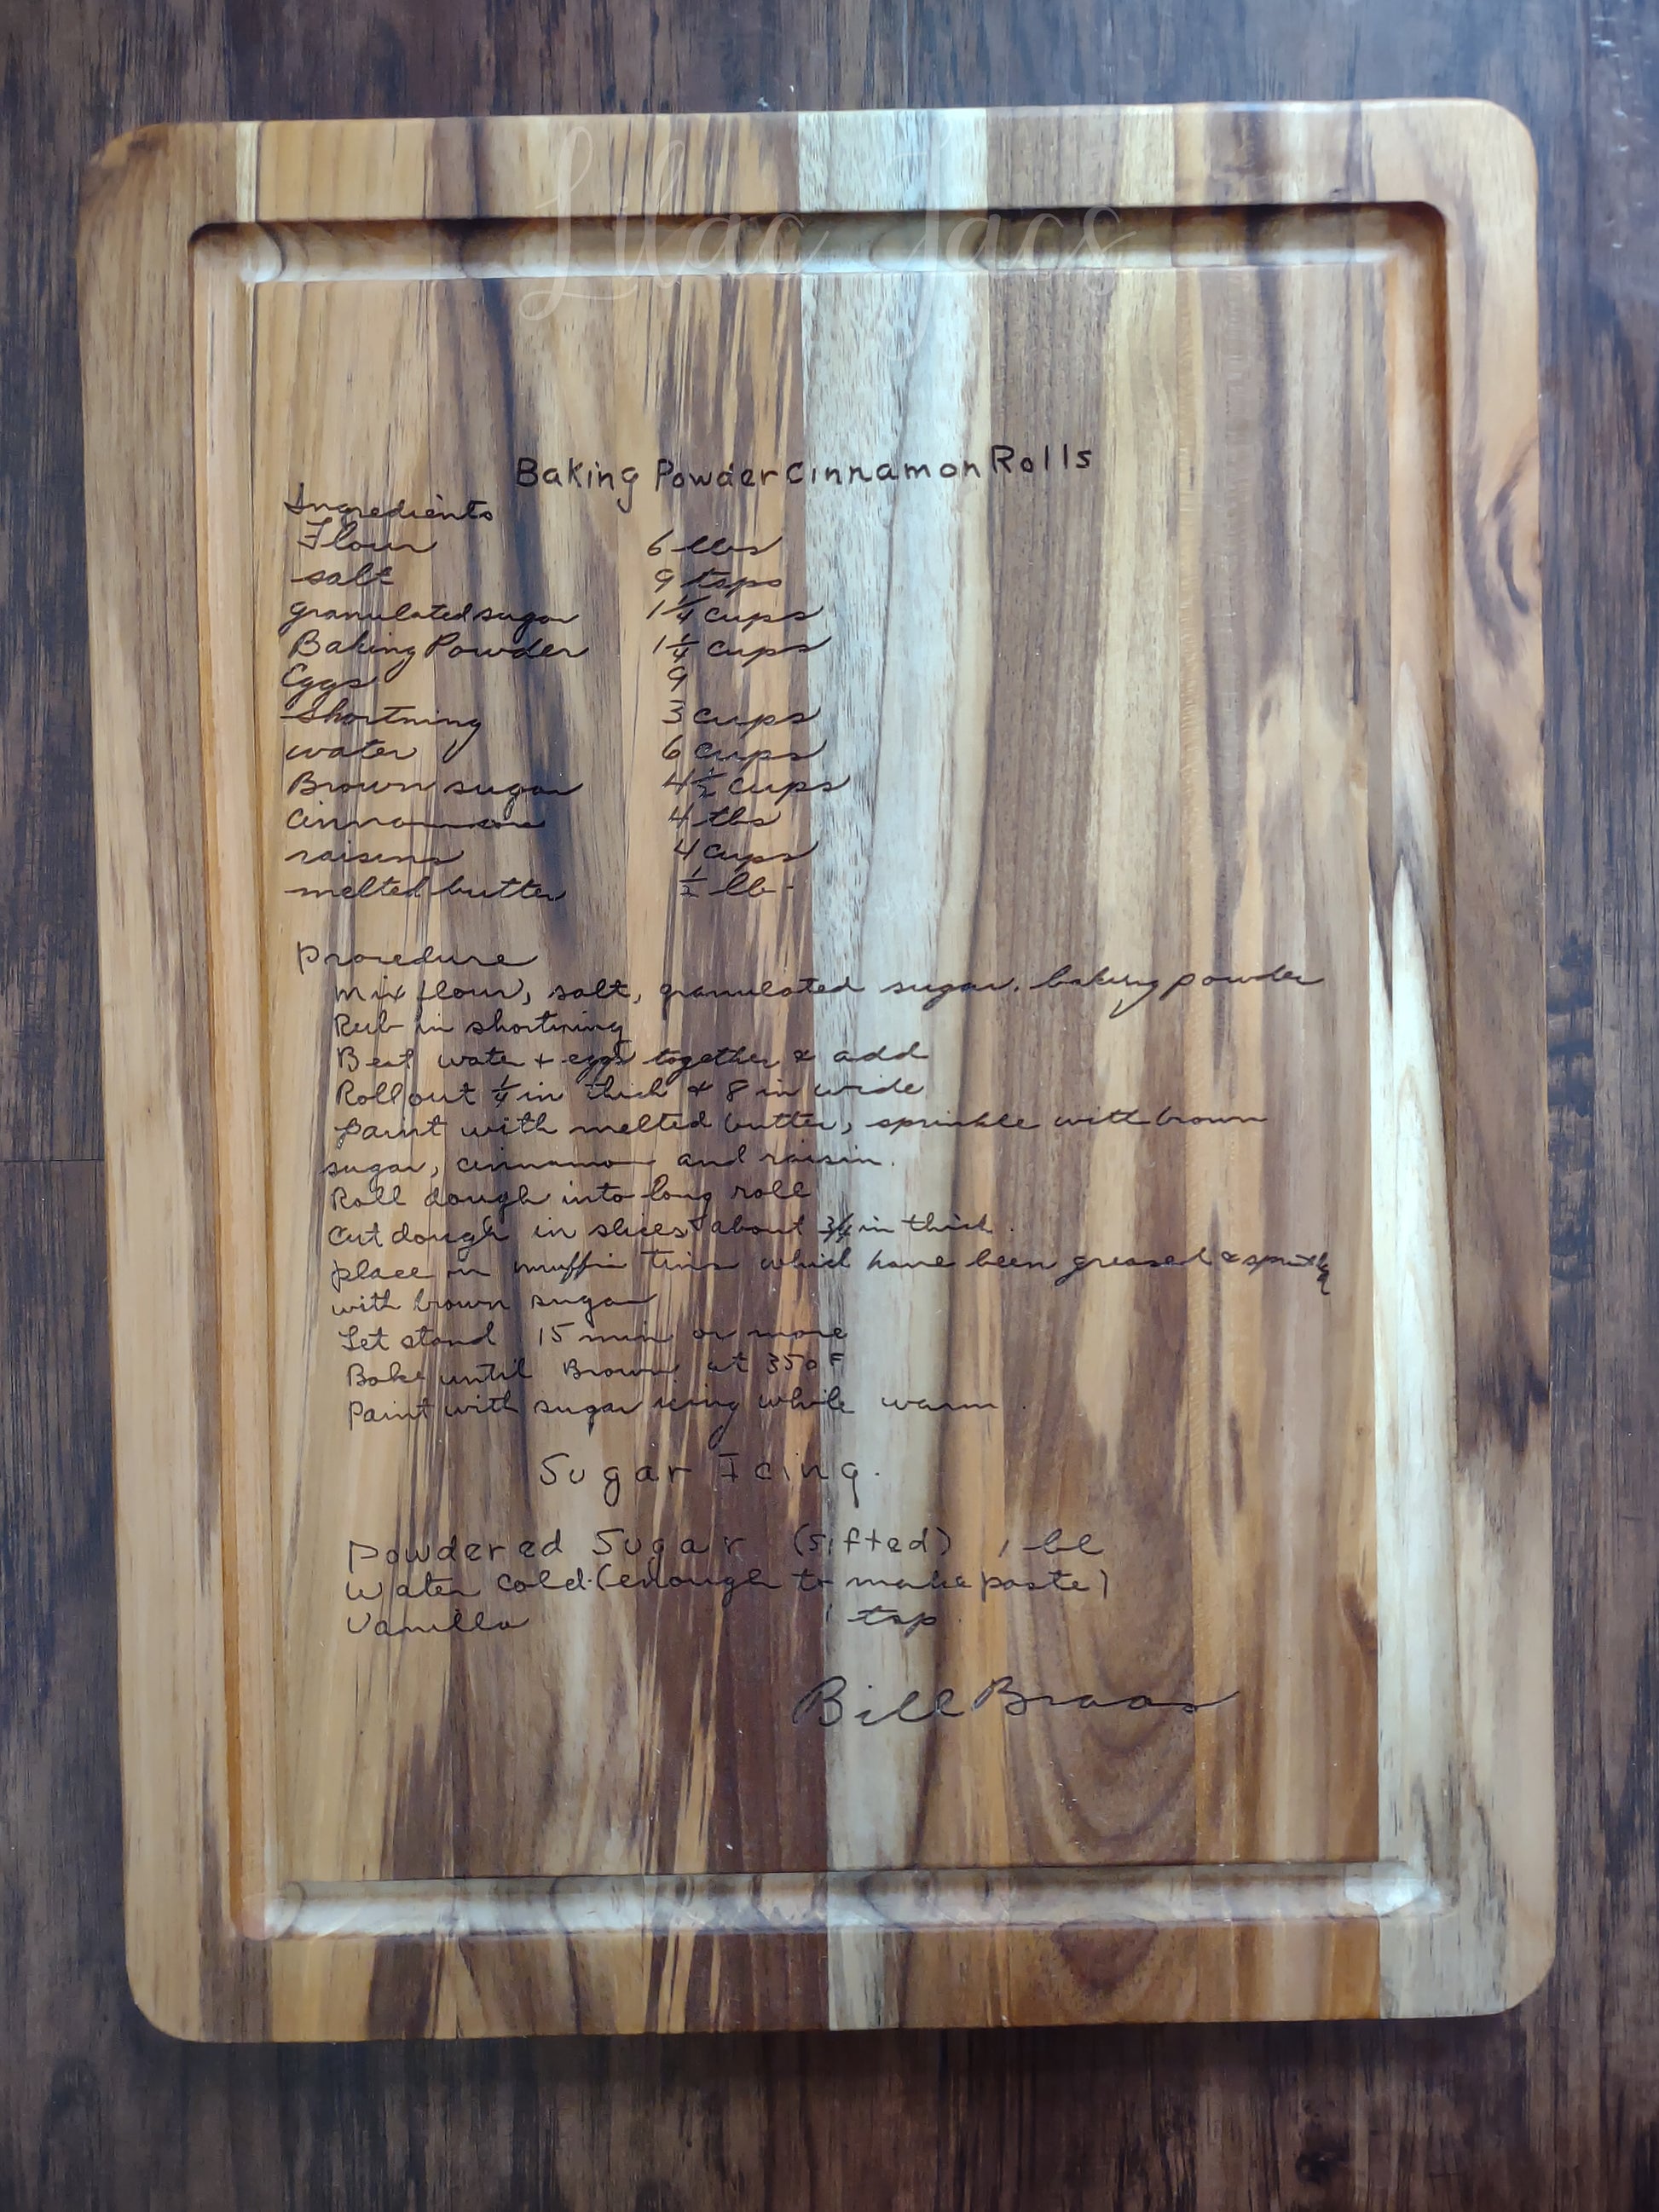 Lilac Jacs
Baking Powder Cinnamon Rolls
Ingredients
Flour 6 lbs
salt 9 tsps
granulated sugar 1 1/4 cups
Baking Powder 1 1/4 cups
Eggs 9
shortning 3 cups
water 6 cups
Brown sugar 4 1/2 cups
Cinnamon 4 tbs
raisens 4 cups
melted butter 1/2 lb.
Procedure
Mix flour, salt, granulated sugar, baking powder
Rub in shortning
Beat water + eggs together & add
Roll out 1/4 in thick & 8 in wide
Paint with melted butter, sprinkle with brown
sugar, cinnamon and raisin.
Roll dough into long roll
Cut dough in slices about 3/4 in thick.
place in muffin tins which have been greased &
with brown sugar
Let stand 15 min or more
Bake until Brown at 350 F
Paint with sugar icing while warm.
Sugar Icing.
Powdered Sugar (sifted) 1 lb
Water cold (enough to make paste)
Vanilla 1 tsp.
Bill Braas